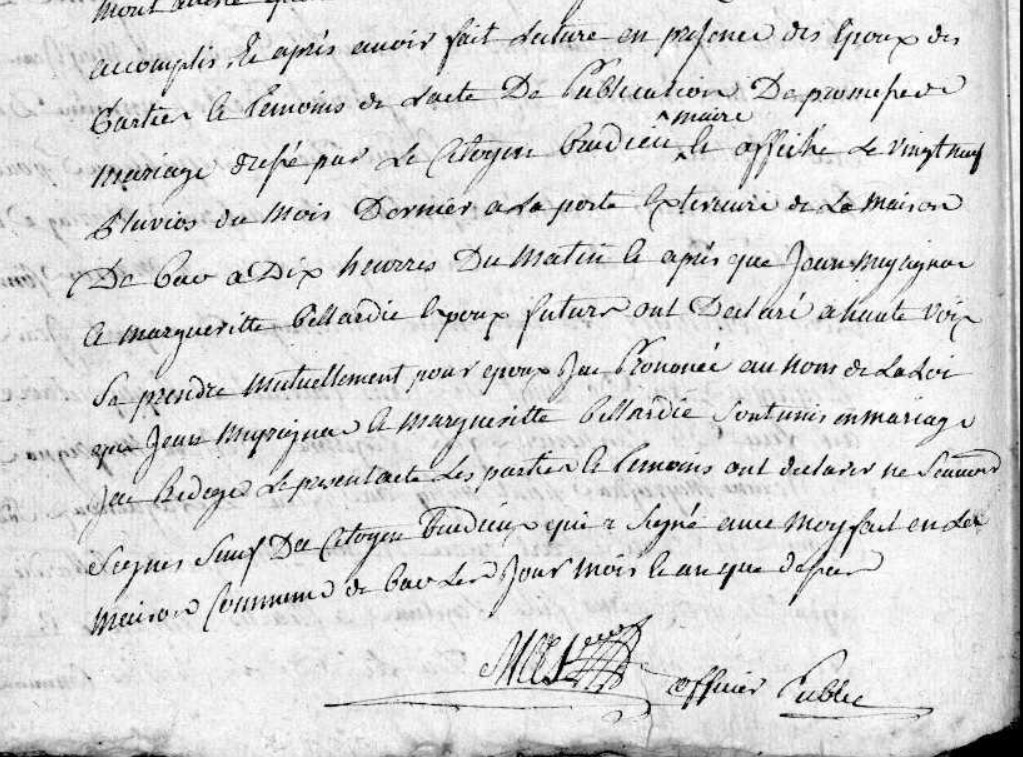 accomplis, Et après avoir fait Lecture en presence des Epoux des
Partie et Temoins de Lacte De Publication De promesse de
mariage dressé par Le Citoyen Baudieu maire Et affiché Le vingt neuf
Pluvios du Mois Dernier a La porte Exterieure de La Maison
De a Dix heurres Du Matin Et après que Jean Meyrignac
Et Margueritte Billardie Epoux futurs ont Declaré a haute Voix
Sa prendre Mutuellement pour epoux Jac Prononcée au nom de La Loi
que Jean Meyrignac Et Margueritte Billardie Sont unis en mariage
Jac Redege Le present acte Les partie Et Temoins ont declarer ne
Signer Sauf De Citoyen Baudieu qui a Signé avec Moy fait en La
Maison Commune de Les Jour Mois Et an que
officier Public